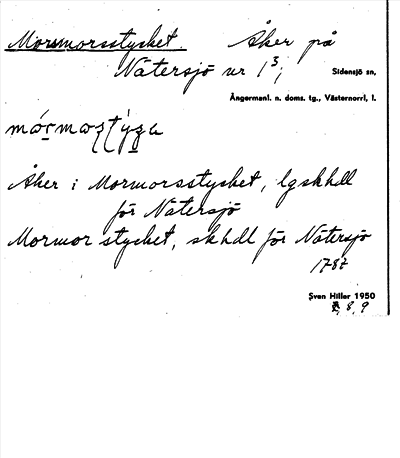 Morsmorsstycket. Åker på
Nätersjö nr 1³; Sidensjö sn,
Ångermanl. n. doms. tg., Västernorrl. l.
Åker i Mormorsstycket, lgskhdl
för Nätersjö
Mormor stycket, skhdl för Nätersjö
1787
Sven Hiller 1950
8, 9